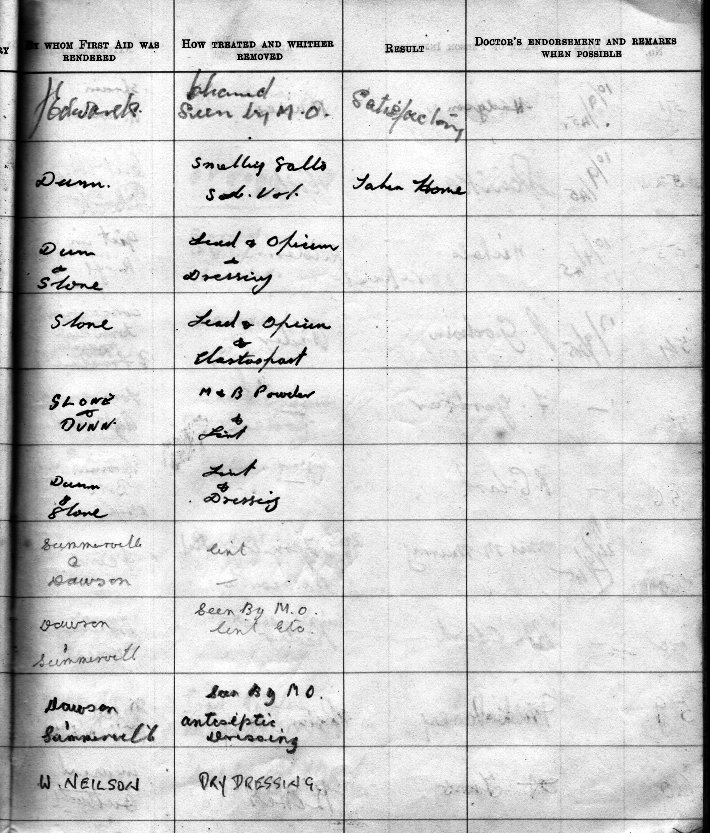 RY
BY WHOM FIRST AID WAS
RENDERED
HOW TREATED AND WHITHER
REMOVED
RESULT
DOCTOR'S ENDORSEMENT AND REMARKS
WHEN POSSIBLE
J Edwards.
Cleaned
Seen by M.O.
Satisfactory
Dunn.
Smelling Salts
Sal. Vol.
Taken Home
Dunn
&
Stone
Lead & Opium
&
Dressing
Stone
Lead & Opium
&
Elastoplast
SLONE
&
DUNN.
M & B Powder
&
Lint
Dunn
&
Slone
Lint
&
Dressing
Summervill
&
Dawson
lint
Dawson
Summervill
Seen By M.O.
lint etc.
Dawson
Summervill
Seen By M O.
antiseptic
Dressing
W. NEILSON
DRY DRESSING.